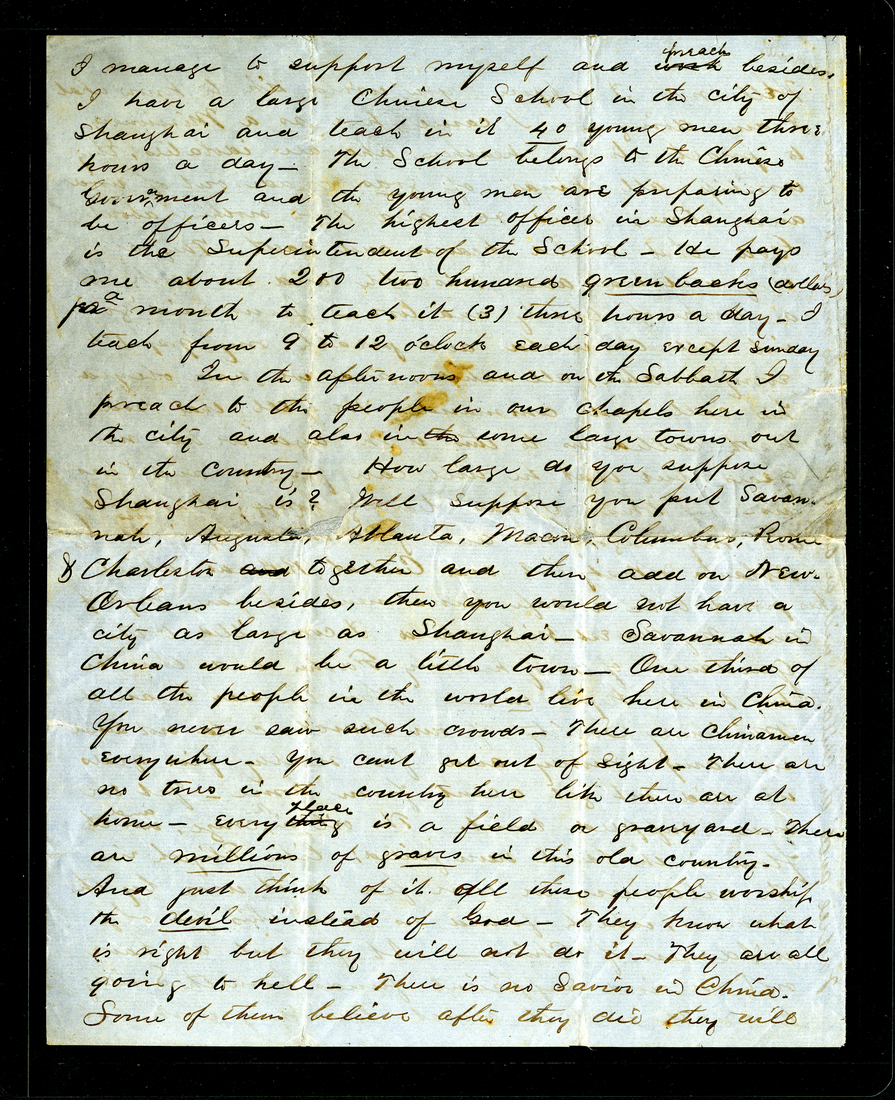 I manage to support myself and preach besides.
I have a large Chinese School in the city of
Shanghai and teach in it 40 young men three
hours a day — The School belongs to the Chinese
Government and the young men are preparing to
be officers — The highest officer in Shanghai
is the Superintendent of the School — He pays
me about 200 two hundred greenbacks (dollars)
a month to teach it (3) three hours a day — I
teach from 9 to 12 o'clock each day except Sunday
In the afternoons and on the Sabbath I
preach to the people in our chapels here in
the city and also in the some large towns out
in the country — How large do you suppose
Shanghai is? Well suppose you put Savan-
nah, Augusta, Atlanta, Macon, Columbus, Rome
& Charleston and together and then add on New-
Orleans besides, then you would not have a
city as large as Shanghai — Savannah in
China would be a little town — One third of
all the people in the world live here in China.
You never saw such crowds — There are Chinamen
everywhere — You cant get out of sight — There are
no trees in the country here like there are at
home — Every place thing is a field or graveyard — There
are millions of graves in this old country.
And just think of it. All these people worship
the devil instead of God — They know what
is right but they will not do it — They are all
going to hell — There is no Savior in China.
Some of them believe after they die they will